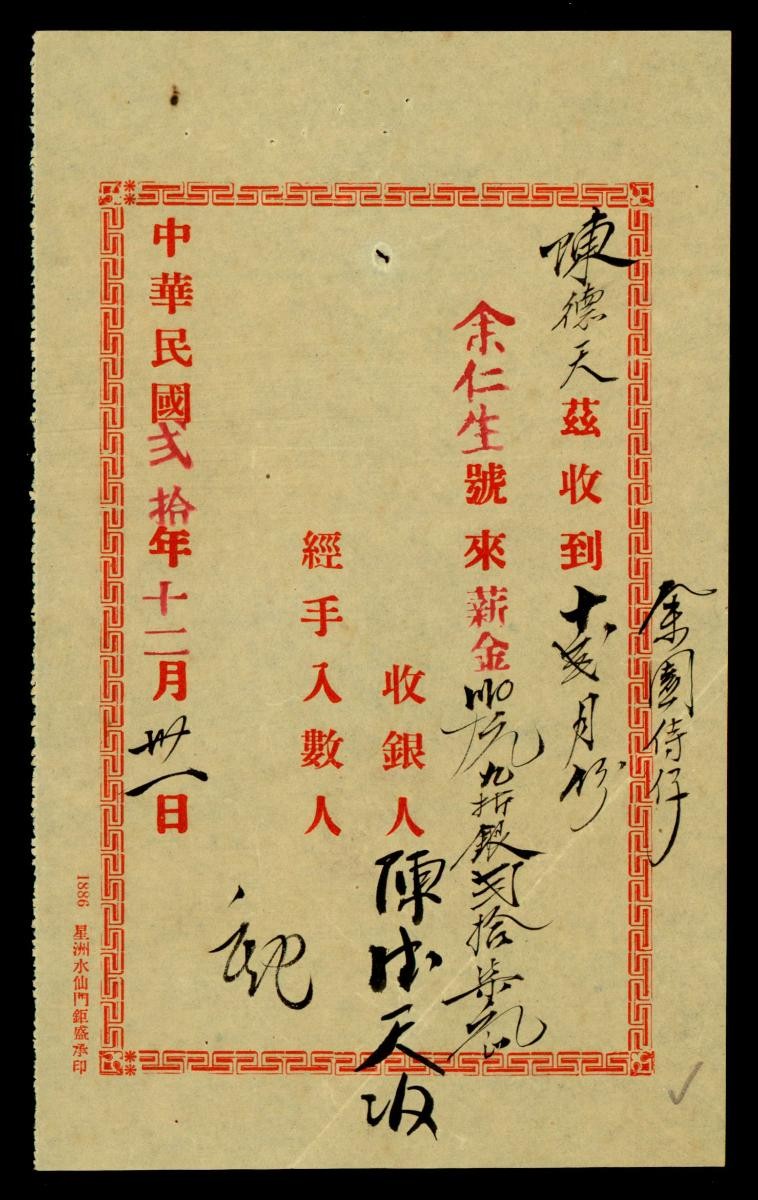 余園侍仔
陳德天茲收到十弍月份
余仁生號來薪金〣〇元九折銀弍拾柒元
收銀人陳德天收
經手入數人
中華民國弍拾年十二月卅一日
1886 星洲水仙門鉅盛承印